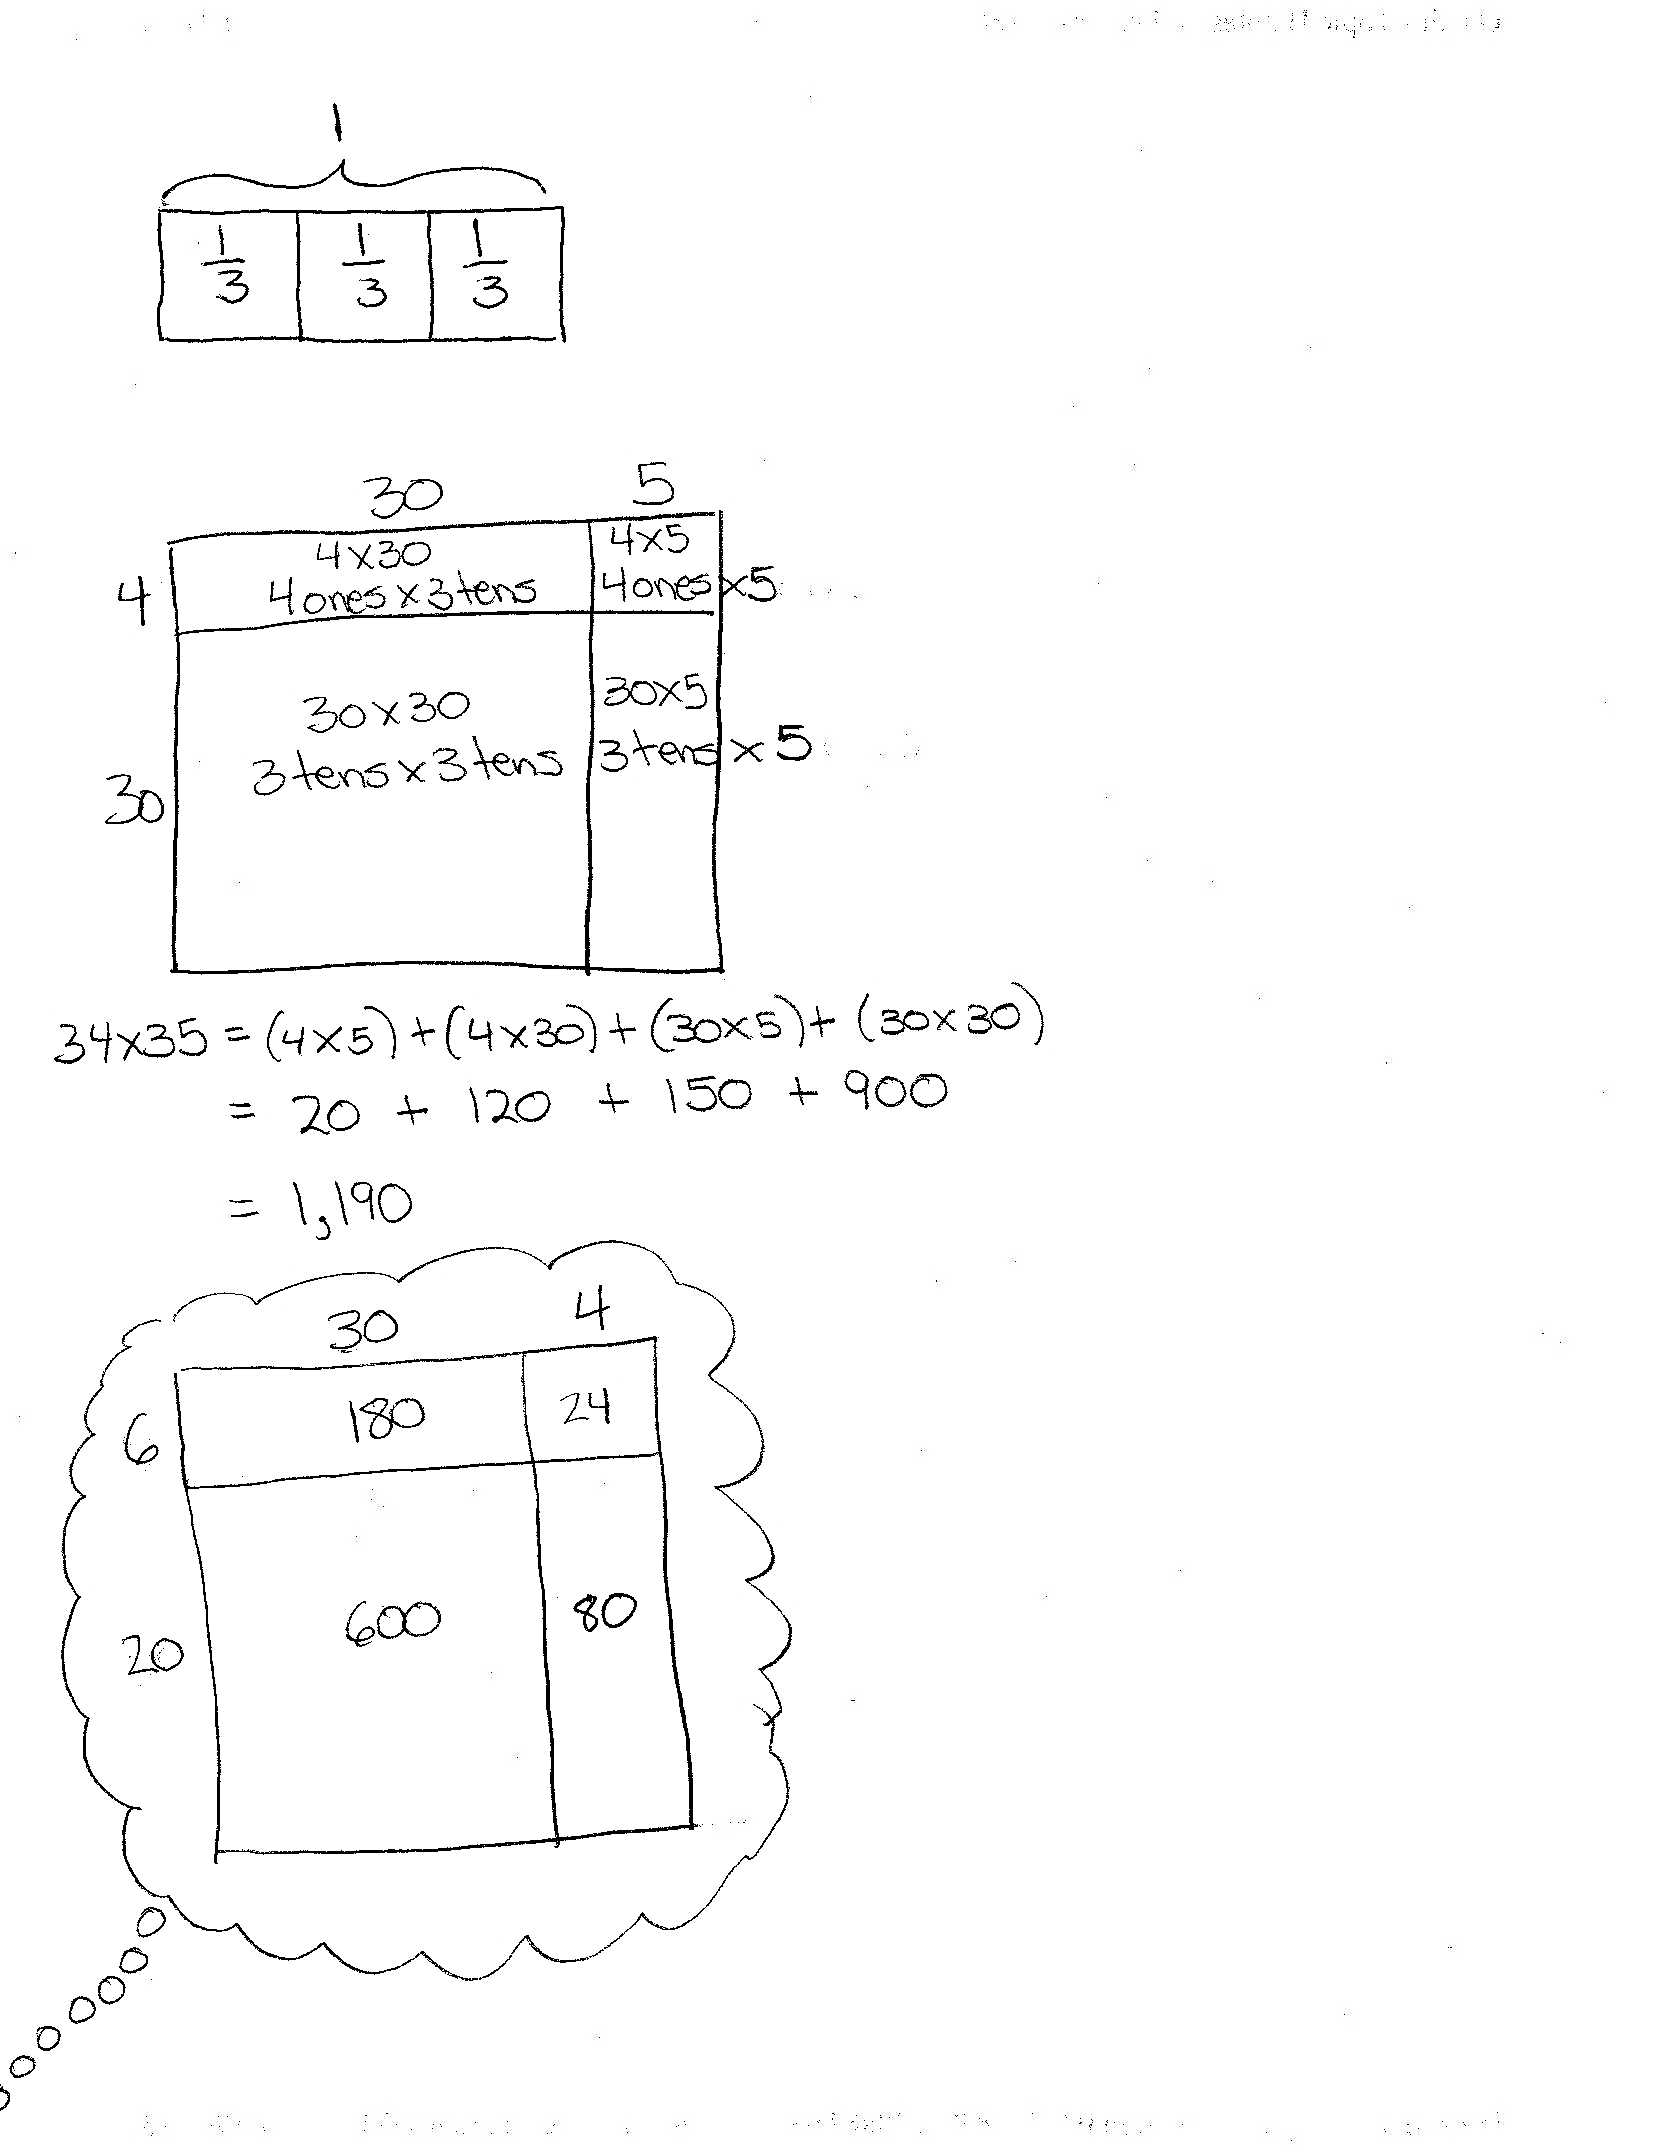 1
1/3 1/3 1/3
30 5
4x30 4x5
4 4ones x 3tens 4ones x5
30x30 30x5
3tens x 3tens 3tens x 5
30
34x35 = (4x5)+(4x30)+(30x5)+(30x30)
= 20 + 120 + 150 + 900
= 1,190
30 4
6 180 24
20 600 80